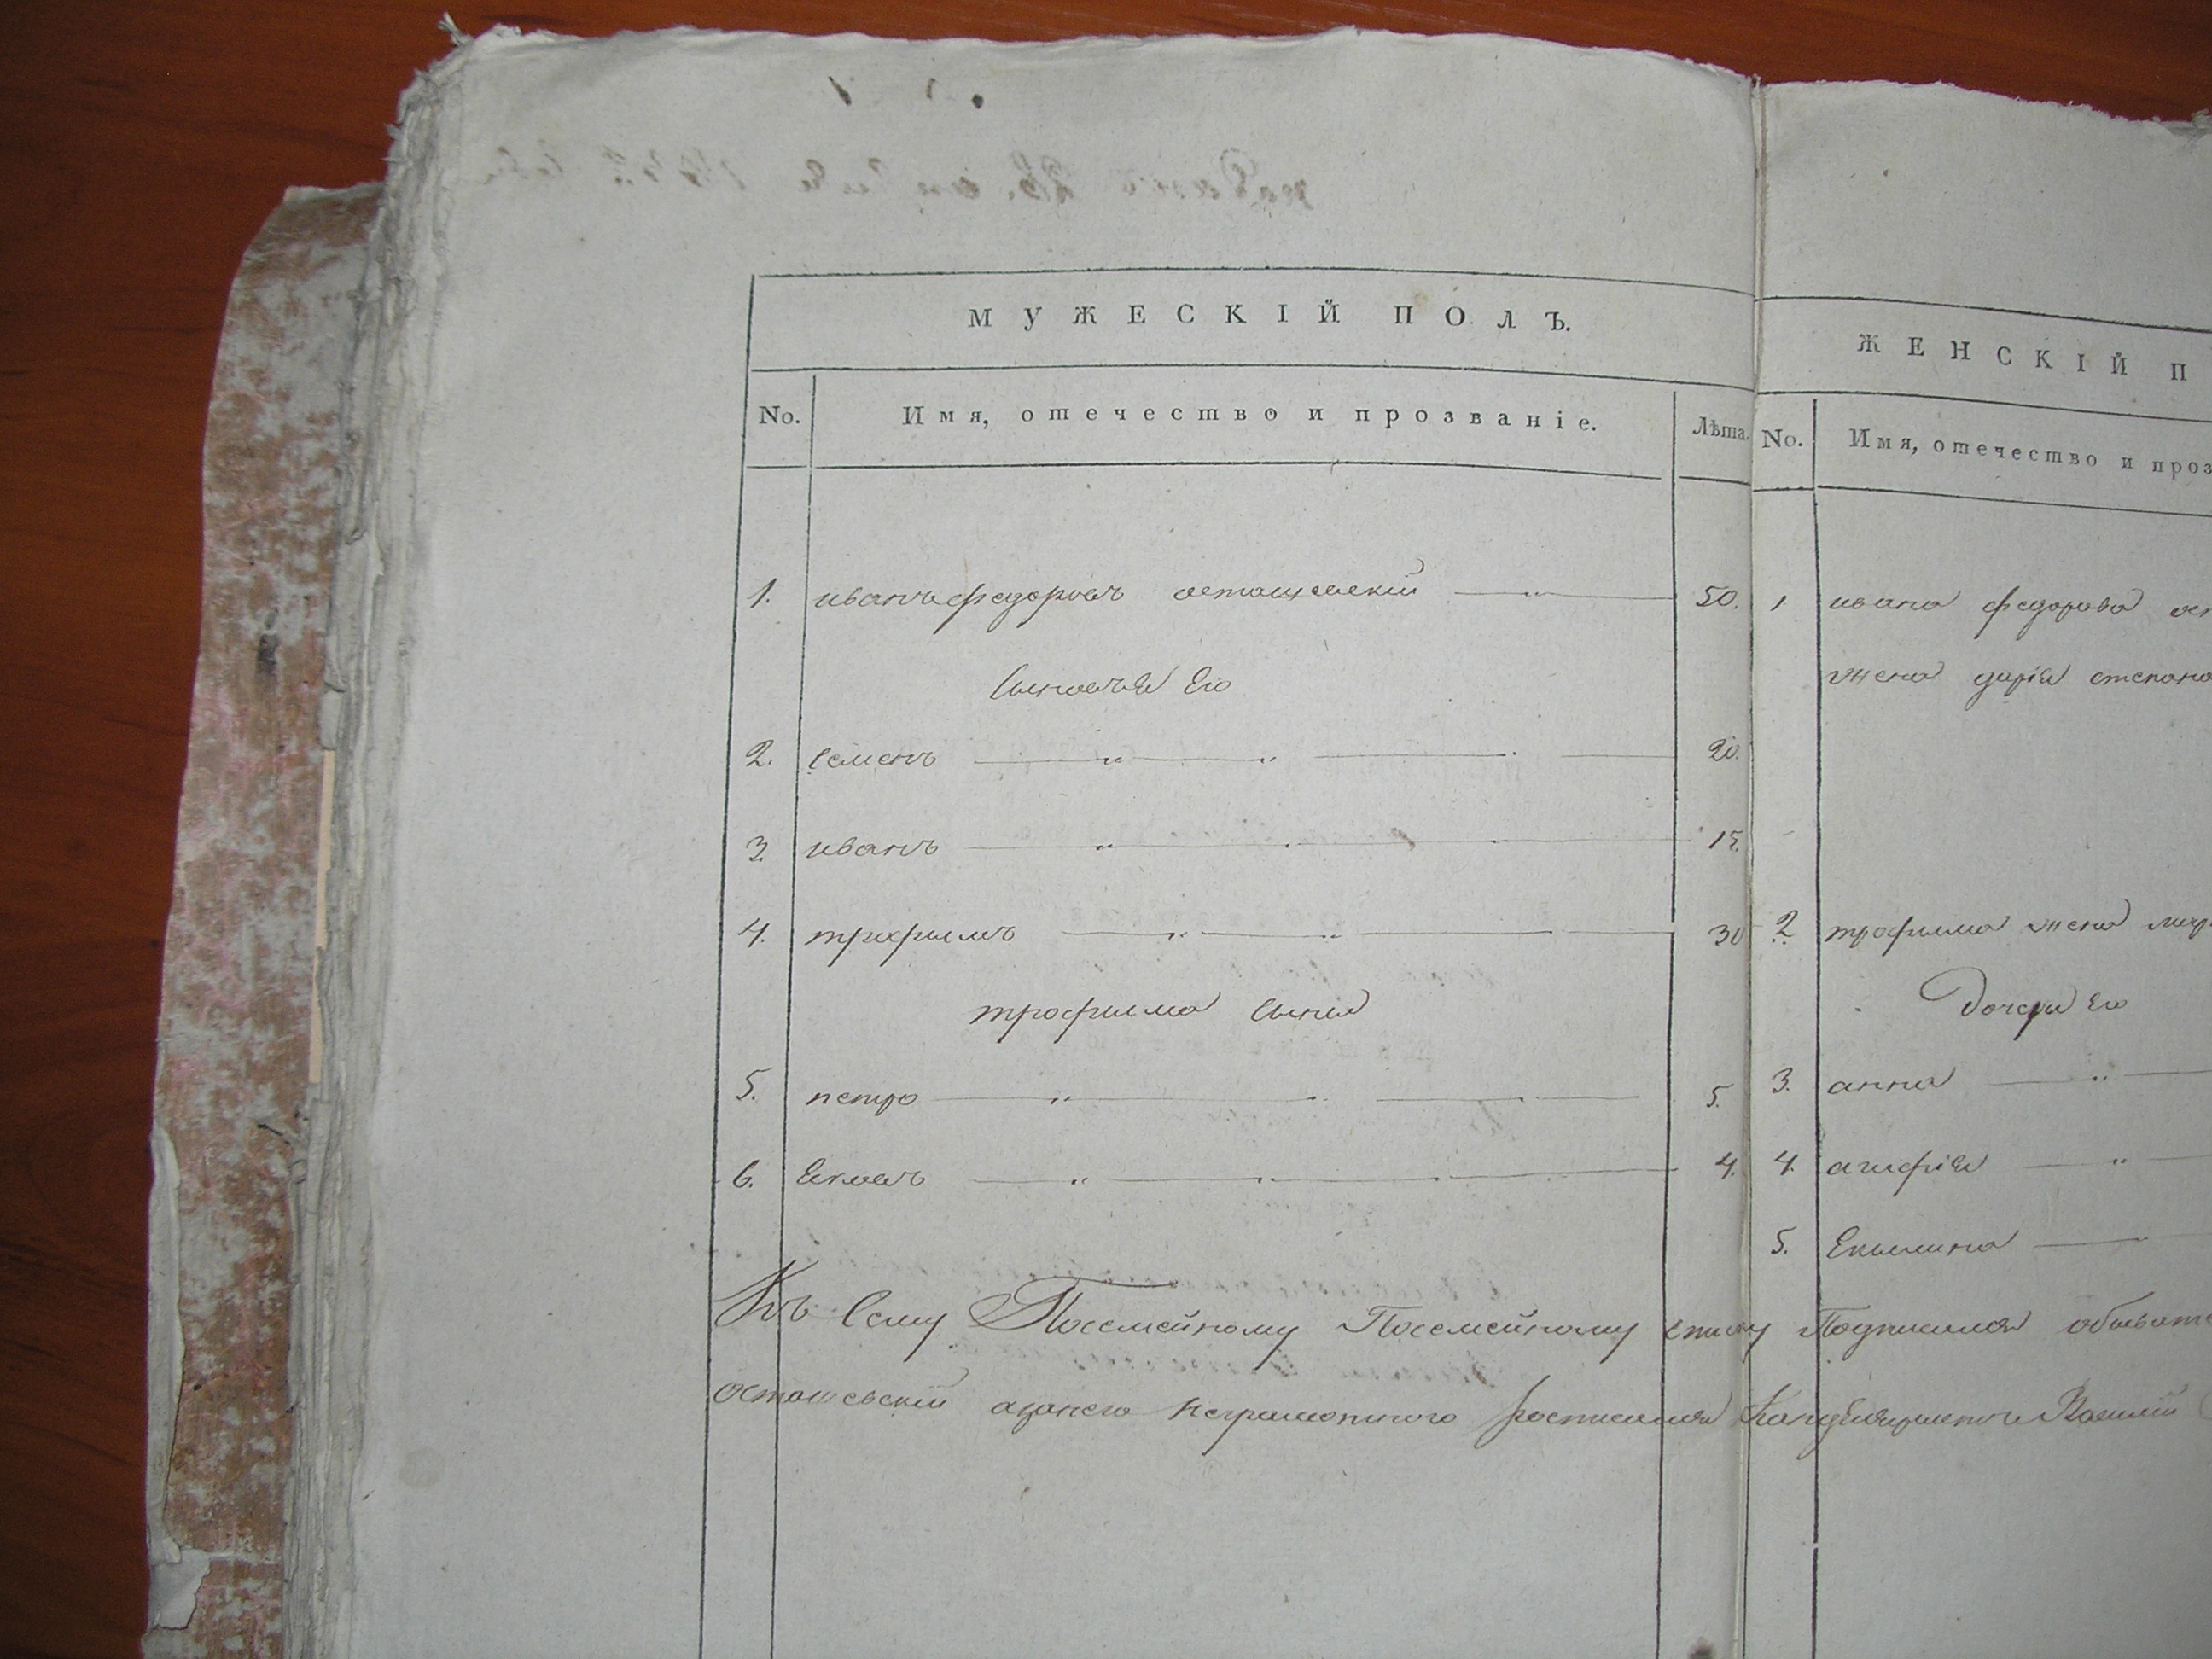 МУЖЕСКІЙ ПОЛЪ.
No. Имя, отечество и прозваніе. Лѣта.
1. иванъ федоровъ осташевскій 50.
Сыновья Его
2. семенъ 20.
3. иванъ 15.
4. трофимъ 30
трофима сыня
5. петро 5.
6. Яковъ 4.
ЖЕНСКІЙ П
No. Имя, отечество и проз
1 ивана федорова ос
жена дарія степано
2 трофима жена мар
Дочери Его
3. анна
4. агафія
5. Екилина
Къ Сему Посемейному Посемейному списку Подписался обывате
осташевскій азанего неграмотного росписался